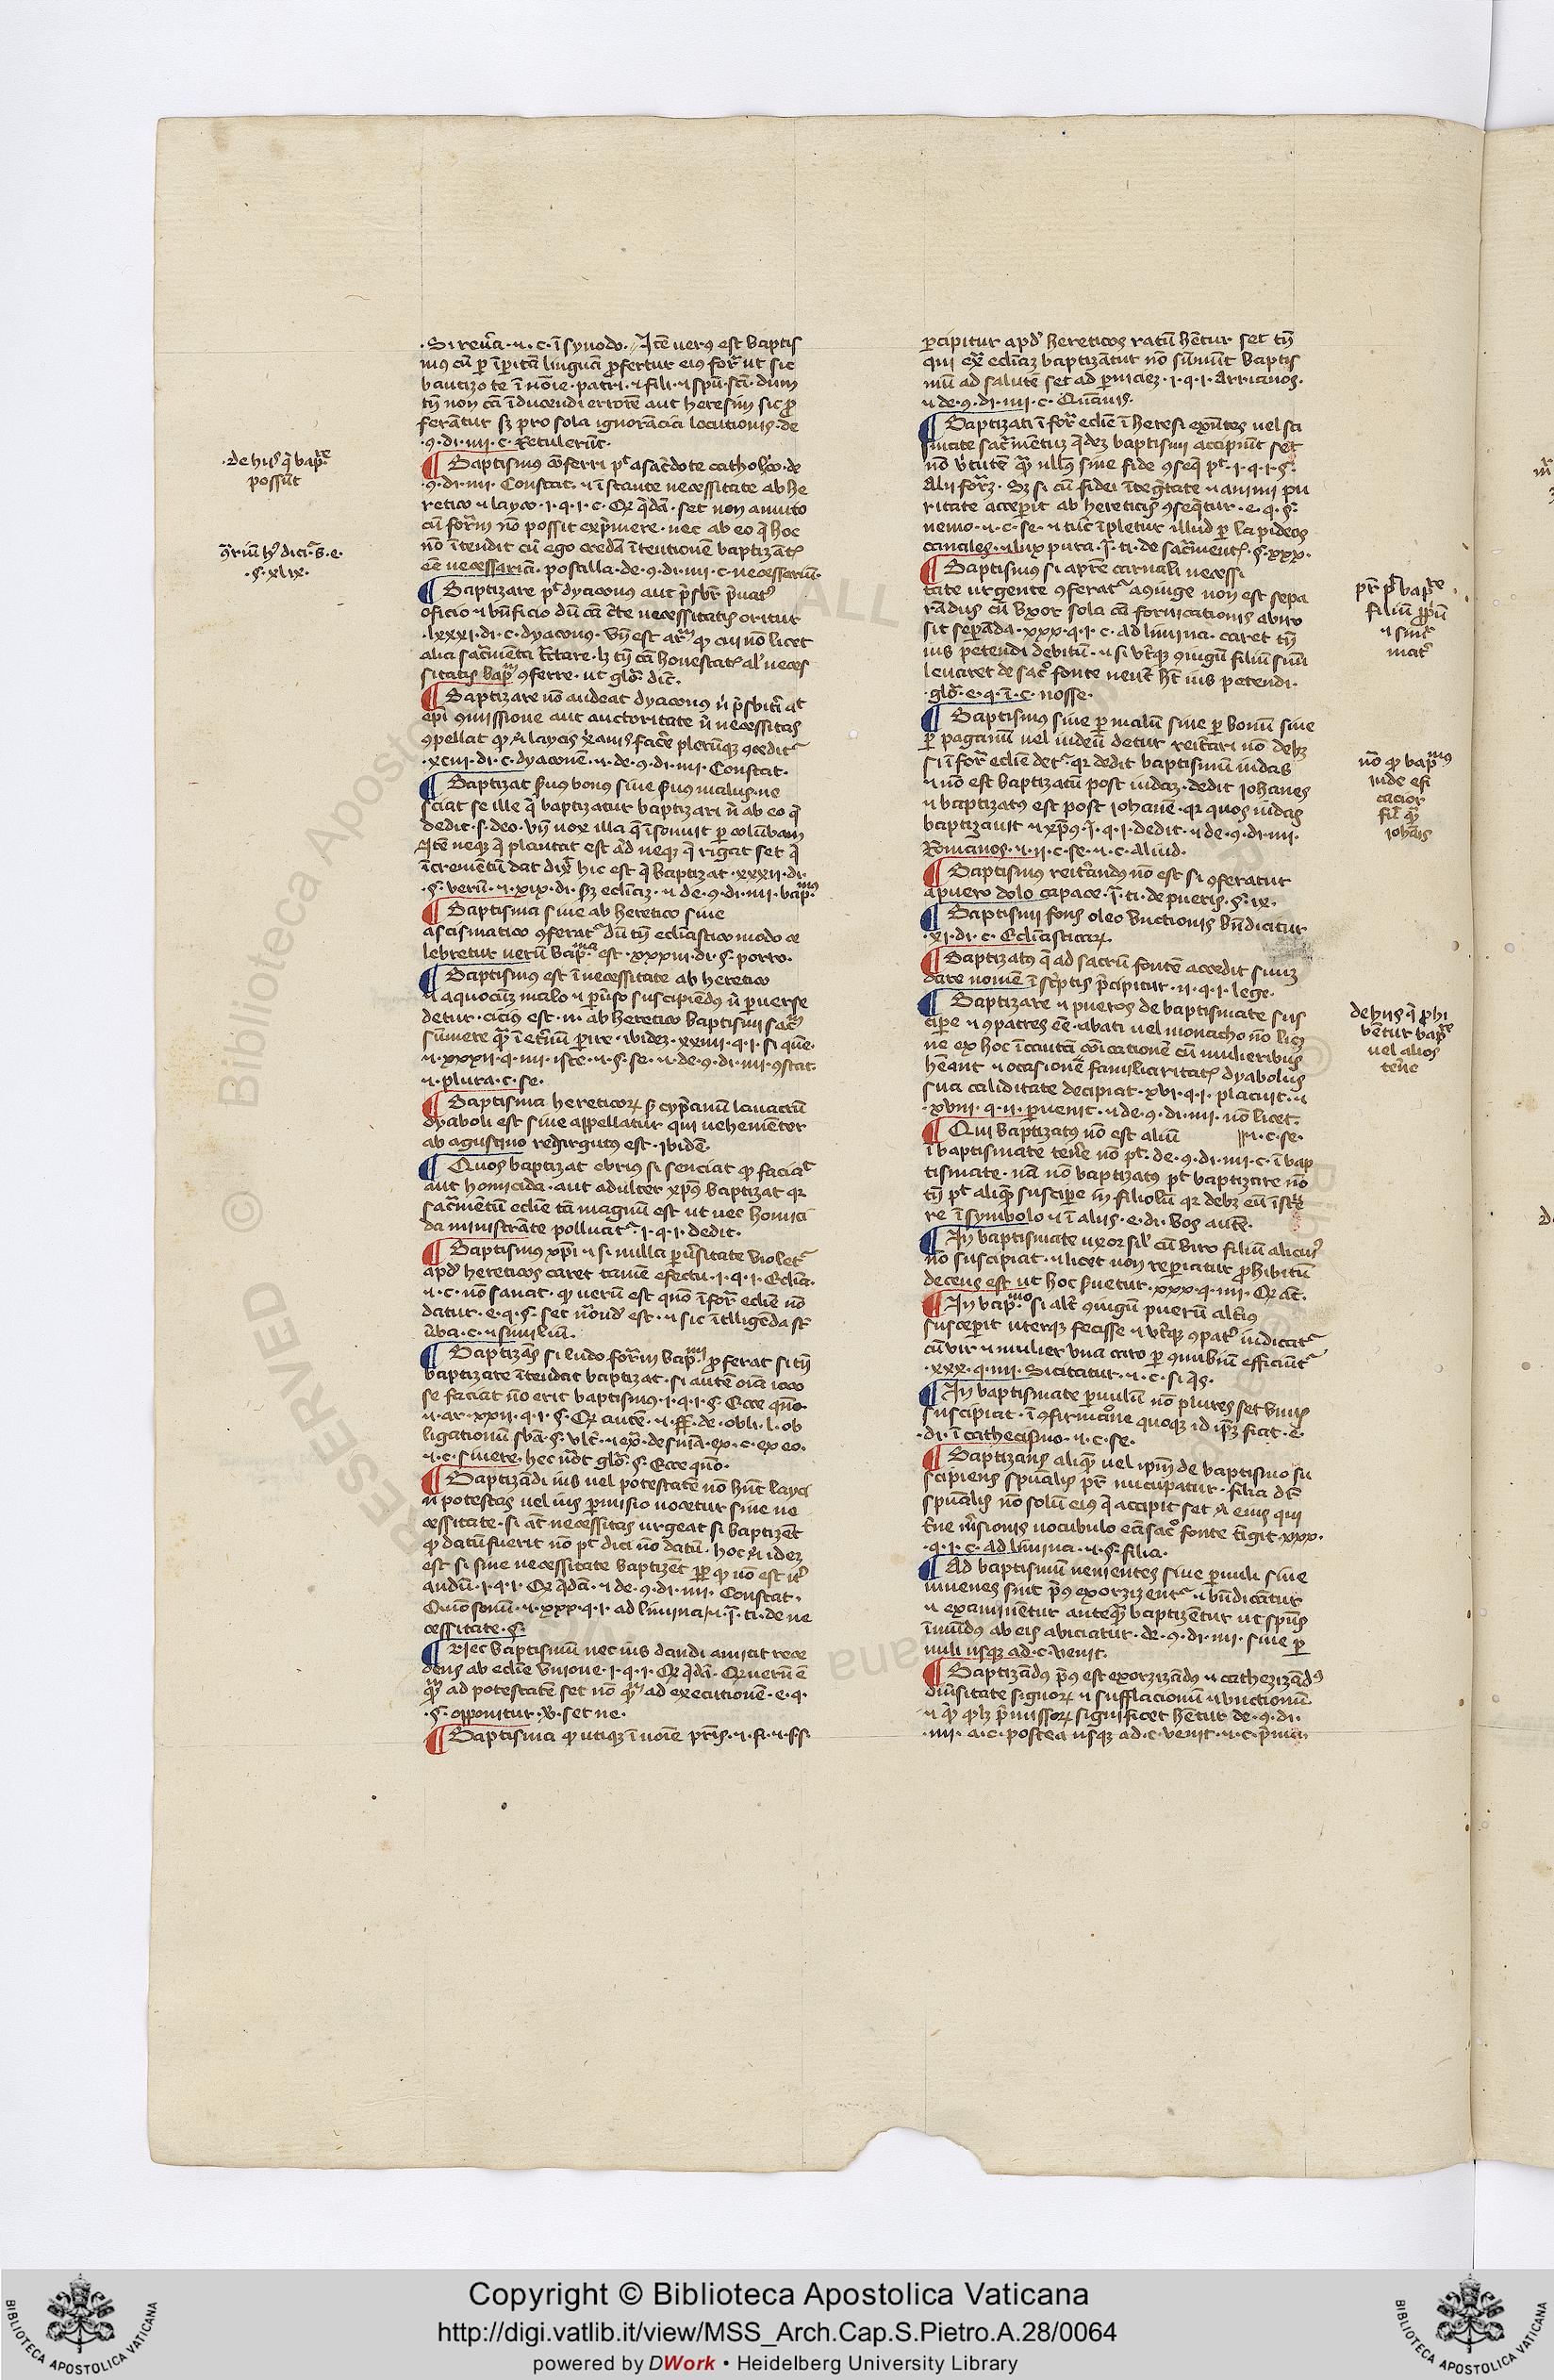 .Si reuĉa.⁊.c.ī synodo. Itē uerꝰ est baptis
mꝰ cū ꝑ īpitā linguā ꝓfertur eiꝰ for͛ ut sic
bautizo te ī noīe.patri.⁊ fili.⁊ spū.scī.dum
tn̄ non cā īducendi errorē aut heresim sic ꝓ
ferātur sꝫ pro sola ignorācia locutionis.de
.ꝯ.di.iiii.c.Retulerūt.
¶ Baptismus cōferri pͭ a sac̄dote catholico.de
.ꝯ.di.iiii. Constat.⁊ ī stante necessitate ab he
retico ⁊ layco.i.q.i.c.Qꝫ q̄dā.set non a muto
cū for͛m nō possit expͥmere.nec ab eo q̄ hoc
nō ītendit cū ego credā ītentionē baptizātꝭ
eē necessariā.postilla.de.ꝯ.di.iiii.c.necessariū.
¶ Baptizare pͭ dyaconus aut p̄sbr̄ pͥuatꝰ
oficio ⁊ bn̄ficio dū cā c̄te necessitatis oritur
.lxxxi.di.c.dyaconus. Vn̄ est arᵐ ꝙ cui nō licet
alia sac̄menta tͣctare.lꝫ tn̄ cā honestatꝭ al' neces
sitatis bapᵐ ꝯferre.ut glo͛.dic̄.
¶ Baptizare nō audeat dyaconus ul̄ p̄sbitr̄ at
epī ꝯmissione aut auctoritate n̄ necessitas
ꝯpellat ꝙ ⁊ laycis xͥanis fac̄e plerūqꝫ ꝯcedit͛
.xciii.di.c.dyaconē.⁊.de.ꝯ.di.iiii.Constat.
¶ Baptizat s̄uus bonus siue s̄uus malus.ne
sciat se ille q̄ baptizatur baptizari n̄ ab eo q̄
dedit.s.deo.vn̄ uox illa q̄ īsonuit ꝑ colūbam
Itē neqꝫ q̄ plantat est aͥd neqꝫ q̄ rigat set q̄
īcrementū dat dix͛ hic est q̄ baptizat.xxxii.di.
.§.uerū.⁊.xix.di.sꝫ eccl̄iaꝫ.⁊ de.ꝯ.di.iiii.bap.ᵐᵘˢ
¶ Baptisma siue ab heretico siue
a scismatico ꝯferat͛ dū tn̄ eccl̄iastico modo ce
lebretur uerū bap.ᵐᵃ est.xxxiii.di.§.porro.
¶ Baptismus est ī necessitate ab heretico
⁊ a quocūqꝫ malo ⁊ ꝑuerso suscipiēdus n̄ peruerse
detur.cicius est.n.ab heretico baptismi sac̄ᵐ
sumere qͣm ī et̄nū ꝑire.ibideꝫ.xxiiii.q.i.si quē.
.⁊.xxxii.q.iiii.iste.⁊.§.se.⁊.de.ꝯ.di.iiii.ꝯstat.
.⁊.plura.c.se.
¶ Baptisma hereticoꝝ sͨ cypͥanū lauacrū
dyaboli est siue appellatur qui uehementer
ab agustino redargutus est.ibidē.
¶ Quos baptizat ebrius si senciat ꝙ faciat
aut homicida.aut adulter xp̄s baptizat qꝛ
sac̄mētū eccl̄ie tā magnū est ut nec homici
da ministrāte polluat͛.i.q.i.dedit.
¶ Baptismus xp̄i ⁊ si nulla ꝑuersitate violet͛
apd̛ hereticos caret tamē efectu.i.q.i.Eccl̄ia.
.⁊.c.nō sanat.ꝙ uerū est qn̄o ī for͛ eccl̄ie nō
datur.e.q.§.set n̄oud̛ est.⁊ sic ītelligēda sͭ
ūba.c.⁊ similiū.
¶ Baptizās si ludo for͛m bap.ᵐⁱ proferat si tn̄
baptizare ītendat baptizat.si autē oīa ioco
se faciat nō erit baptismus.i.q.i.§.Ecce qn̄o.
.⁊.ar.xxii.q.i.§.Qꝫ autē.⁊.ff.de.obli.l.ob
ligationū sb̄a.§.ult̄.⁊ ex͛.de suiā.ex.c.ex eo.
.⁊.c.sinere.hec n̄dc̄ glo͛.§.Ecce qn̄o.
¶ Baptizādi ius vel potestatē nō hn̄t layci
n̄ potestas uel ius ꝑmisio uocetur siue ne
cessitate.si at̄ necessitas urgeat si baptizēt
ꝙ datū fuerit nō pͭ dici nō datū.hoc ⁊ ideꝫ
est si sine necessitate baptizēt ꝓpͥ ꝙ nō est itꝰ
andū.i.q.i.Qꝫ q̄dā.⁊ de.ꝯ.di.iiii.Constat.
Quō sonū.⁊.xxx.q.i.ad limina.⁊.ī.ti.de ne
cessitate.§.
¶ Nec baptismū nec ius dandi amictit rece
dens ab eccl̄ie vnione.i.q.i.Qꝫ q̄dā.Qꝫ uerū ē
qͣm ad potestatē set nō qͣm ad executionē.e.q.
.§.opponitur.v̄.set ne.
¶ Baptisma ꝙ utiqꝫ ī noīe pr̄is.⁊.fi.⁊.ss.
percipitur apd̛ hereticos ratū hētur set tn̄
qui exͣ eccl̄iaꝫ baptizātur nō sumūt baptis
mū ad salutē set ad perniciē.i.q.i.Arrianos.
.⁊ de.ꝯ.di.iiii.c.Quāuis.
¶ Baptizati ī for͛ eccl̄ie ī heresi exn̄tes uel sci
smate sac̄mentuꝫ q̄deꝫ baptismi accipiūt set
nō v̄tutē qͣ nllꝰ sine fide ꝯseq̄ pͭ.i.q.i.§.
Alii for͛ꝫ.Sꝫ si cū fidei ītegͥtate ⁊ animi pu
ritate accepit ab hereticis ꝯseq̄tur.e.q.§.
nemo.⁊.c.se.⁊ tūc īpletur illud per lapideos
canales.⁊ uix pura.ī.ti.de sac̄mentꝭ.§.xxx.
¶ Baptismus si a pr̄e carnali necessi
tate urgente ꝯferat͛ a ꝯiuge non est sepa
rādus cū vxor sola cā fornicationis a uiro
sit sepāda.xxx.q.i.c.ad limina.caret tn̄
ius petendi debitū.⁊ si vt̄qꝫ ꝯiugū filiū suū
leuaret de sacͦ fonte neut̄ hͭ ius petendi.
.glo͛.e.q.ī.c.nosse.
¶ Baptismus siue per malū siue per bonū siue
ꝑ paganū uel iudeū detur reit̄ari nō debꝫ
si ī for͛ eccl̄ie det͛.qꝛ dedit baptismū iudas
⁊ nō est baptizatū post iudaꝫ.dedit iohanes
⁊ baptizatꝰ est post iohanē.qꝛ quos iudas
baptizauit ⁊ xp̄s.ī.q.i.dedit.⁊ de.ꝯ.di.iiii.
Romanos.⁊.ii.c.se.⁊.c.Aliud.
¶ Baptismus reit̄andus nō est si ꝯferatur
a puero dolo capace.ī.ti.de pueris.§.ix.
¶ Baptismi fons oleo vnctionis bn̄dicatur
.xi.di.c.Eccl̄iasticaꝝ.
¶ Baptizatꝰ q̄ ad sacrū fontē accedit suuꝫ
dare nomē ī scͥptis p̄cipitur.⁊.q.i.lege.
¶ Baptizare ⁊ pueros de baptismate sus
cipe ⁊ ꝯpatres eē.abati uel monacho nō licꝫ
ne ex hoc īcautā cōicationē cū mulieribus
hēant ⁊ ocasionē familiaritatꝭ dyabolus
sua caliditate decipiat.xvi.q.i.placuit.⁊
.xviii.q.ii.peruenit.⁊ de.ꝯ.di.iiii.nō licet.
¶ Qui baptizatꝰ nō est aliū ⫽⁊.c.se.
ī baptismate ten̄e nō pͭ.de.ꝯ.di.iiii.c.ī bap
tismate.nā nō baptizatꝰ pͭ baptizare nō
tn̄ pͭ aliqͣꝫ suscipe in filiolū qꝛ debꝫ eū īstrue
re ī symbolo ⁊ ī aliis.e.di.Vos autē.
¶ In baptismate uxor sil' cū viro filiū alicuiꝰ
nō suscipiat.⁊ licet non reperiatur ꝓhibitū
decens est ut hoc s̄uetur.xxx.q.iiii.Qꝫ at̄.
¶ In bap.ᵐᵒ si alt̄ ꝯiugū puerū alt̄ius
susceperit uterqꝫ fecisse ⁊ vt̄qꝫ ꝯpatꝰ iudicat͛
cū vir ⁊ mulier vna caro ꝑ ꝯnubiū efficiūt͛
.xxx.q.iiii.Sicitatur.⁊.c.si q̄s.
¶ In baptismate paruulū nō plures set vnus
suscipiat.ī ꝯfirmacōne quoqꝫ id ip̄ꝫ fiat.e.
.di.ī cathecismo.⁊.c.se.
¶ Baptizans aliqͣꝫ uel ip̄m de baptismo su
scipiens spūalis pr̄ nucupatur.filia dͨ
spūalis nō solū eiꝰ q̄ accipit set ⁊ eius qui
t̄ne m̄sionis uocabulo eū sacͦ fonte tīgit.xxx.
.q.i.c.ad limina.⁊.§.filia.
¶ Ad baptismū uenientes siue paruuli siue
iuuenes sint pͥus exorzizent͛ ⁊ bn̄dicātur
⁊ examinentur anteqͣ baptizētur ut spūs
īmūdꝰ ab eis abiciatur.de.ꝯ.di.iiii.siue per
uuli usqꝫ ad.c.uenit.
¶ Baptizādꝰ pͥus est exorzizādꝰ ⁊ cathezizādꝰ
diuersitate signoꝝ ⁊ sufflacionū ⁊ unctionū
⁊ qͥ qͦlꝫ p̄missoꝝ significet hētur de.ꝯ.di.
.iiii.a.c.postea usqꝫ ad.c.uenit.⁊.c.pͥma.
.de hiis q̄ bap.ʳᵉ
possūt
ꝯͬriū hꝰ dici͛.s.e.
.§.xlix.
pr̄ pͭ bap.ʳᵉ
filiū ꝓpͥū
⁊ sinͤ
matꝰ
nō ꝙ bap.ᵐᵘˢ
iude efi
cacior
fit qͣ
iohīs
de hiis q̄ ꝓhi
bētur bap.ʳᵉ
uel alios
ten̄e
Copyright © Biblioteca Apostolica Vaticana
http://digi.vatlib.it/view/MSS_Arch.Cap.S.Pietro.A.28/0064
powered by DWork • Heidelberg University Library
BIBLIOTECA APOSTOLICA VATICANA
BIBLIOTECA APOSTOLICA VATICANA